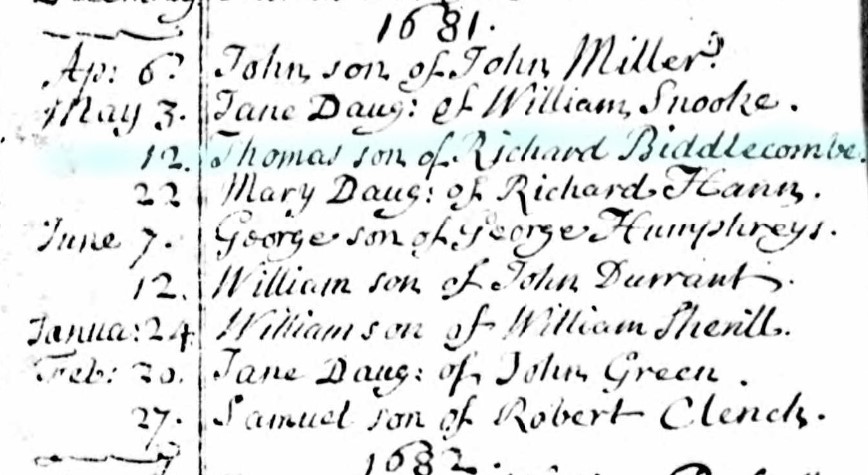 1681.
Ap: 6. John son of John Miller.
May 3. Jane Daug: of William Snooke.
12. Thomas son of Richard Biddlecombe.
22 Mary Daug: of Richard Hann.
June 7. George son of George Humphreys.
12. William son of John Durrant.
Janua: 24 William son of William Sherill.
Feb: 20. Jane Daug: of John Green.
27. Samuel son of Robert Clench.
1682.